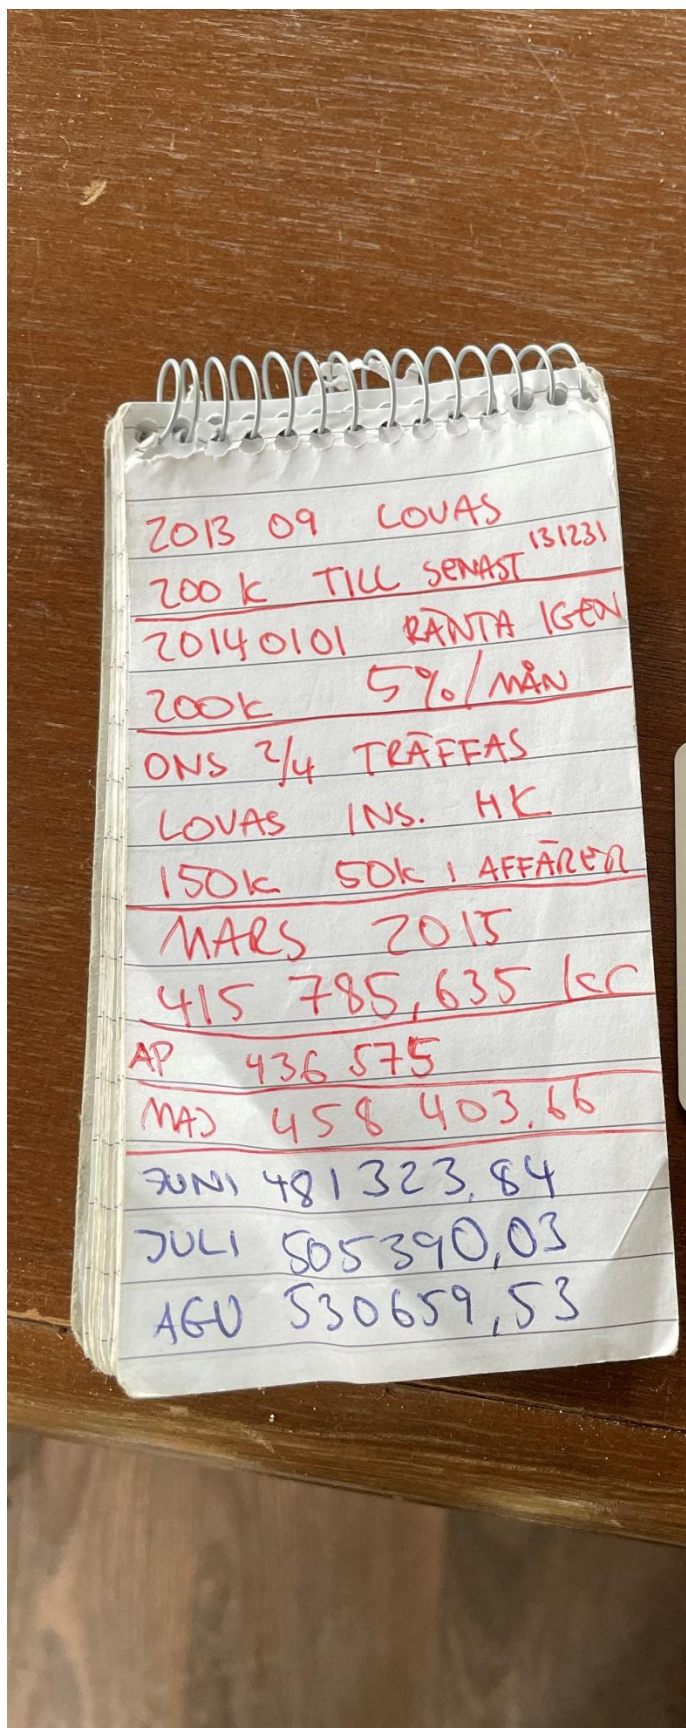 2013 09 LOVAS
200k TILL SENAST 131231
20140101 RÄNTA IGEN
200k 5%/MÅN
ONS 2/4 TRÄFFAS
LOVAS INS. HK
150k 50k I AFFÄRER
MARS 2015
415 785,635 kr
AP 436 575
MAJ 458 403.66
JUNI 481323.84
JULI 505390,03
AGU 530659,53